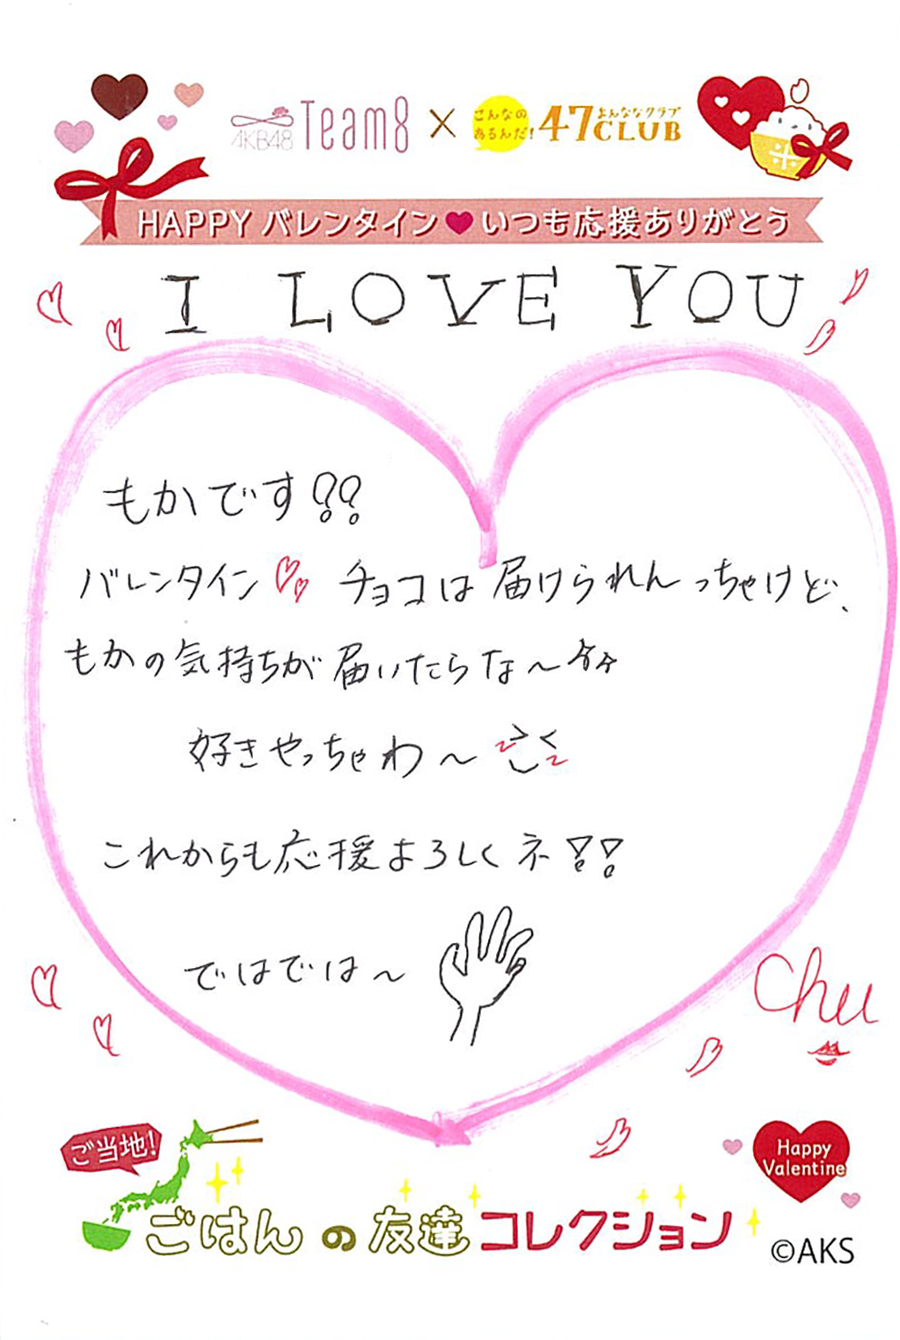 AKB48 Team8 × こんなのあるんだ! 47CLUB よんななクラブ
HAPPY バレンタイン♥いつも応援ありがとう
I LOVE YOU
もかです!!
バレンタイン♡ チョコは届けられんっちゃけど、
もかの気持ちが届いたらな〜
好きやっちゃわ〜
これからも応援よろしくネ!!
ではでは〜
Chu
ご当地!
ごはんの友達コレクション
Happy
Valentine
©AKS